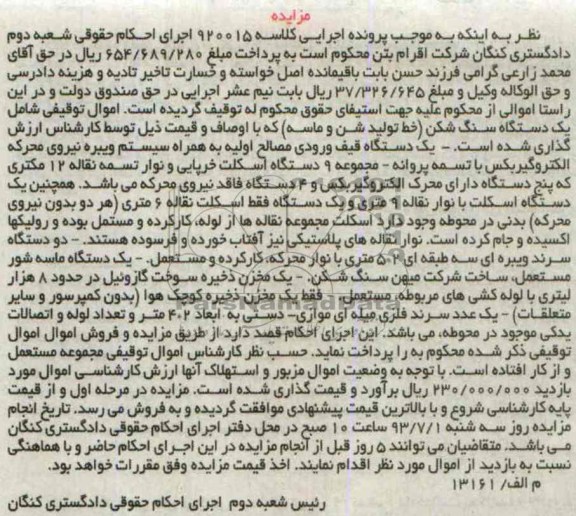 مزایده
نظر به اینکه به موجب پرونده اجرایی کلاسه ۹۲۰۰۱۵ اجرای احکام حقوقی شعبه دوم
دادگستری کنگان شرکت اقرام بتن محکوم است به پرداخت مبلغ ۶۵۴/۶۸۹/۲۸۰ ریال در حق آقای
محمد زارعی گرامی فرزند حسن بابت باقیمانده اصل خواسته و خسارت تاخیر تادیه و هزینه دادرسی
و حق الوکاله وکیل و مبلغ ۳۷/۳۲۶/۶۴۵ ریال بابت نیم عشر اجرایی در حق صندوق دولت و در این
راستا اموالی از محکوم علیه جهت استیفای حقوق محکوم له توقیف گردیده است. اموال توقیفی شامل
یک دستگاه سنگ شکن (خط تولید شن و ماسه) که با اوصاف و قیمت ذیل توسط کارشناس ارزش
گذاری شده است. - یک دستگاه قیف ورودی مصالح اولیه به همراه سیستم ویبره نیروی محرکه
الکتروگیربکس با تسمه پروانه - مجموعه ۹ دستگاه اسکلت خرپایی و نوار تسمه نقاله ۱۲ مکتری
که پنج دستگاه دارای محرک الکتروگیربکس و ۴ دستگاه فاقد نیروی محرکه می باشد. همچنین یک
دستگاه اسکلت با نوار نقاله ۹ متری و یک دستگاه فقط اسکلت نقاله ۶ متری (هر دو بدون نیروی
محرکه) بدنی در محوطه وجود دارد اسکلت مجموعه نقاله ها از لوله، کارکرده و مستمل بوده و رولیکها
اکسیده و جام کرده است. نوار نقاله های پلاستیکی نیز آفتاب خورده و فرسوده هستند. - دو دستگاه
سرند ویبره ای سه طبقه ای ۵ متری با نوار محرکه، کارکرده و مستعمل. - یک دستگاه ماسه شور
مستعمل، ساخت شرکت میهن سنگ شکن. - یک مخزن ذخیره سوخت گازوئیل در حدود ۸ هزار
لیتری با لوله کشی های مربوطه، مستعمل. - فقط یک مخزن ذخیره کوچک هوا (بدون کمپرسور و سایر
متعلقات) - یک عدد سرند فلزی میله ای موازی- دستی به ابعاد ۲*۴ متر و تعداد لوله و اتصالات
یدکی موجود در محوطه، می باشد. این اجرای احکام قصد دارد از طریق مزایده و فروش اموال اموال
توقیفی ذکر شده محکوم به را پرداخت نماید. حسب نظر کارشناس اموال توقیفی مجموعه مستعمل
و از کار افتاده است. با توجه به وضعیت اموال مزبور و استهلاک آنها ارزش کارشناسی اموال مورد
بازدید ۲۳۰/۰۰۰/۰۰۰ ریال برآورد و قیمت گذاری شده است. مزایده در مرحله اول و از قیمت
پایه کارشناسی شروع و با بالاترین قیمت پیشنهادی موافقت گردیده و به فروش می رسد. تاریخ انجام
مزایده روز سه شنبه ۹۳/۷/۱ ساعت ۱۰ صبح در محل دفتر اجرای احکام حقوقی دادگستری کنگان
می باشد. متقاضیان می توانند ۵ روز قبل از انجام مزایده در این اجرای احکام حاضر و با هماهنگی
نسبت به بازدید از اموال مورد نظر اقدام نمایند. اخذ قیمت مزایده وفق مقررات خواهد بود.
م الف/ ۱۳۱۶۱
رئیس شعبه دوم اجرای احکام حقوقی دادگستری کنگان